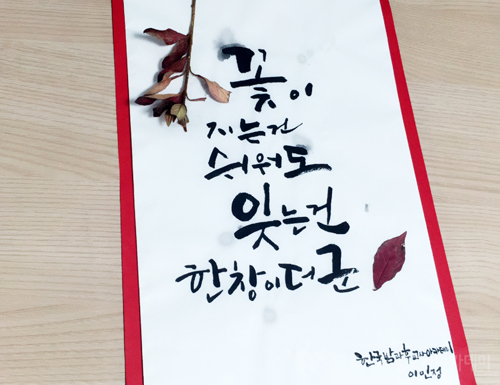 꽃이
지는건
쉬워도
잊는건
한창이더군
한국방과후교사아카데미
이인정